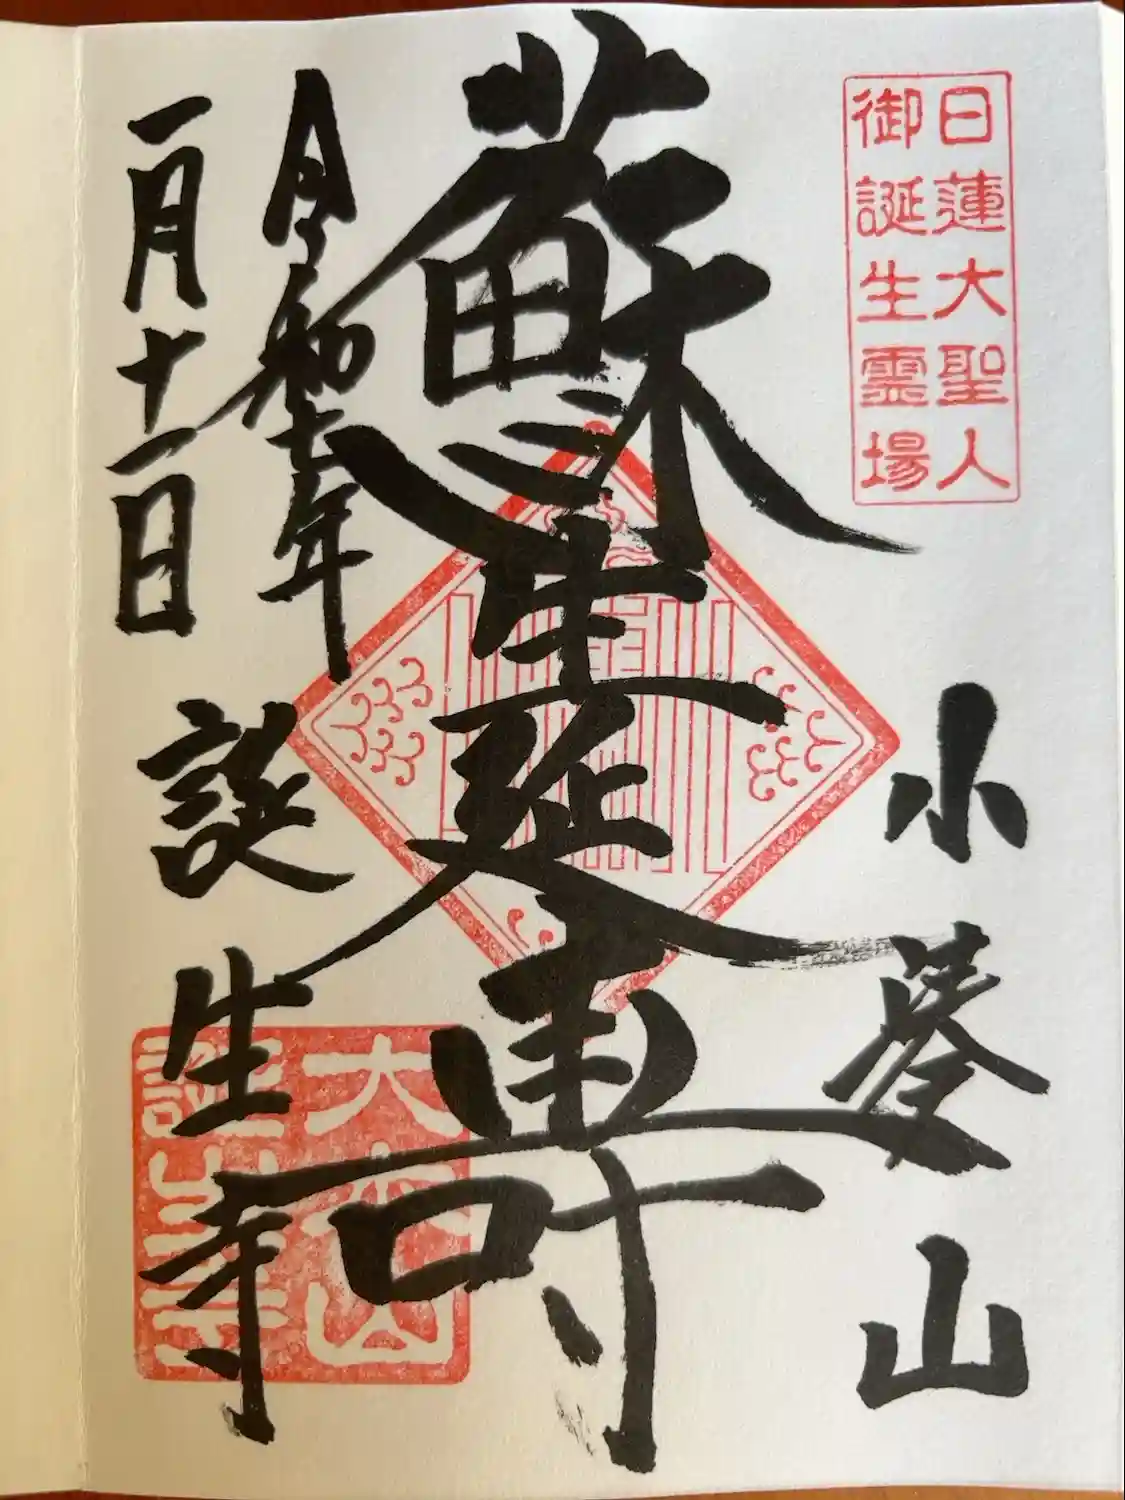 日蓮大聖人
御誕生霊場
小湊山
蘇生延寿
令和七年
一月十一日
誕生寺
大本山
誕生寺